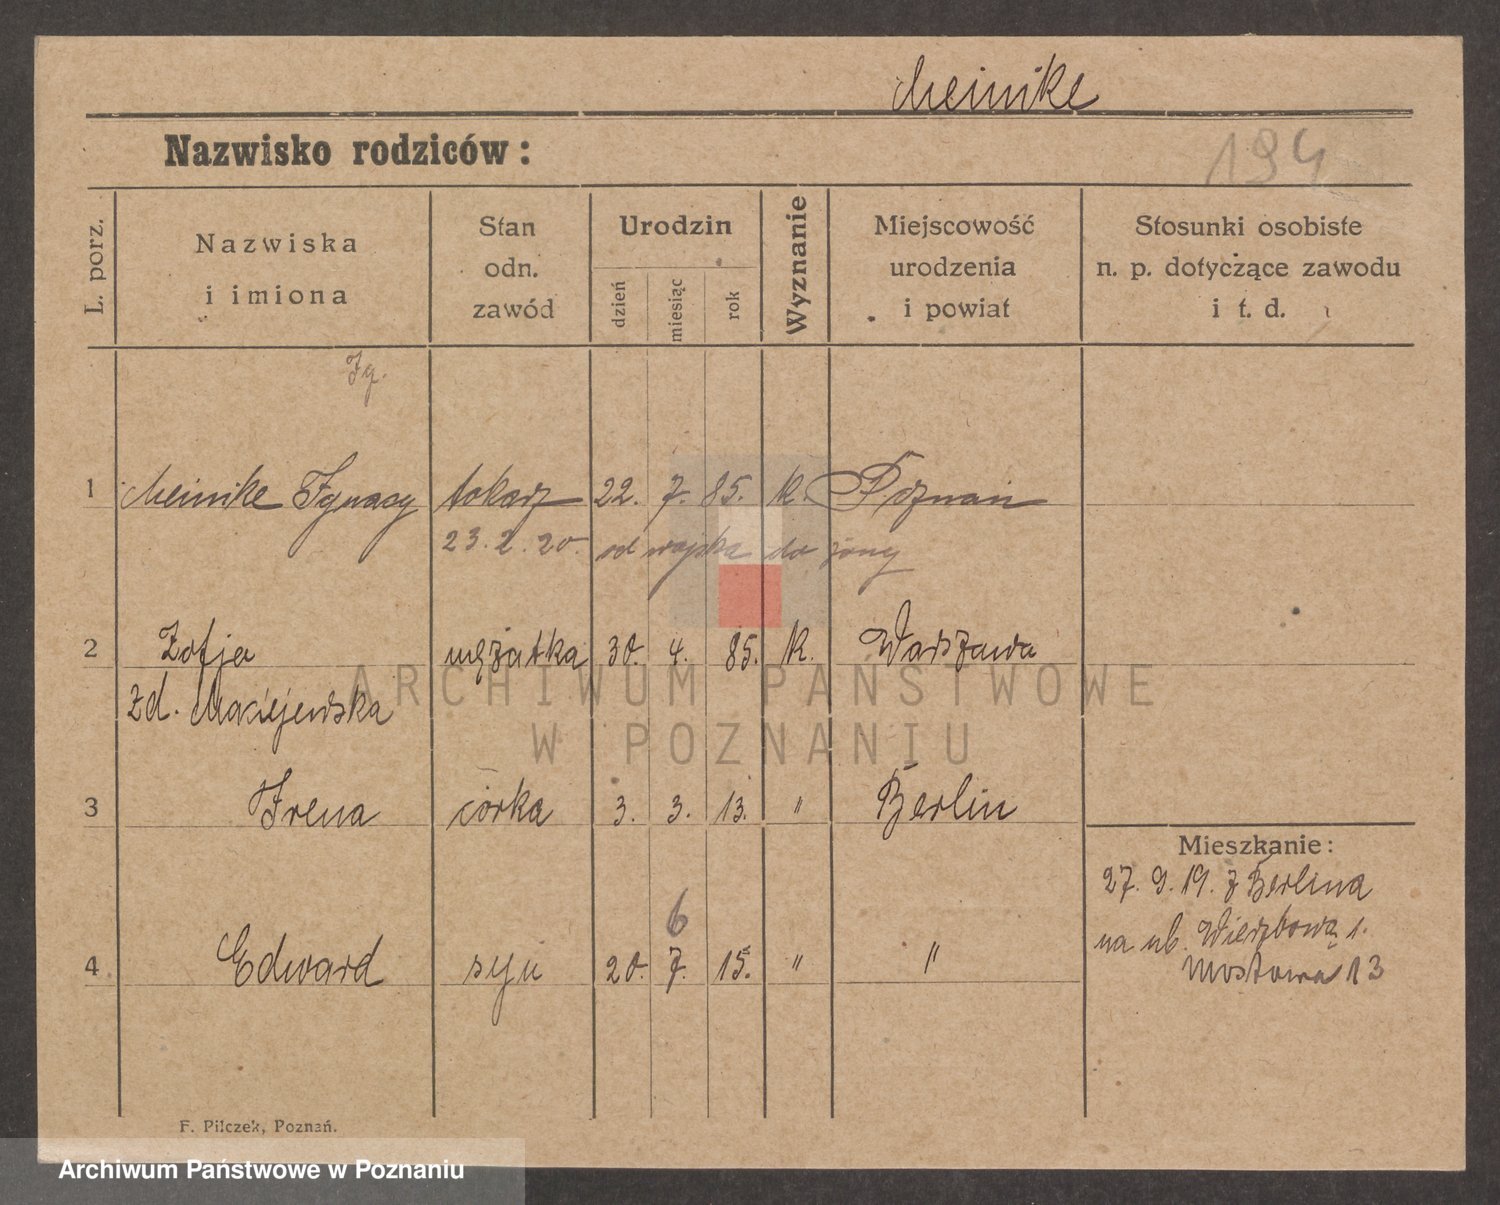 Meinike
Nazwisko rodziców:
194
L. porz.
Nazwiska
i imiona
Stan
odn.
zawód
Urodzin
dzień
miesiąc
rok
Wyznanie
Miejscowość
urodzenia
i powiat
Stosunki osobiste
n. p. dotyczące zawodu
i t. d.
Ig.
1 Meinike Ignacy tokarz 22. 7. 85. K. Poznań
23. 2. 20. od wojska do żony
2 Zofja mężatka 30. 4. 85. K. Warszawa
zd. Maciejewska
3 Irena córka 3. 3. 13. " Berlin
Mieszkanie:
27. 9. 19. z Berlina
na ul. Wierzbową 1.
Mostowa 13
6
4 Edward syn 20. 7. 15. " "
F. Pilczek, Poznań.
ARCHIWUM PAŃSTWOWE
W POZNANIU
Archiwum Państwowe w Poznaniu